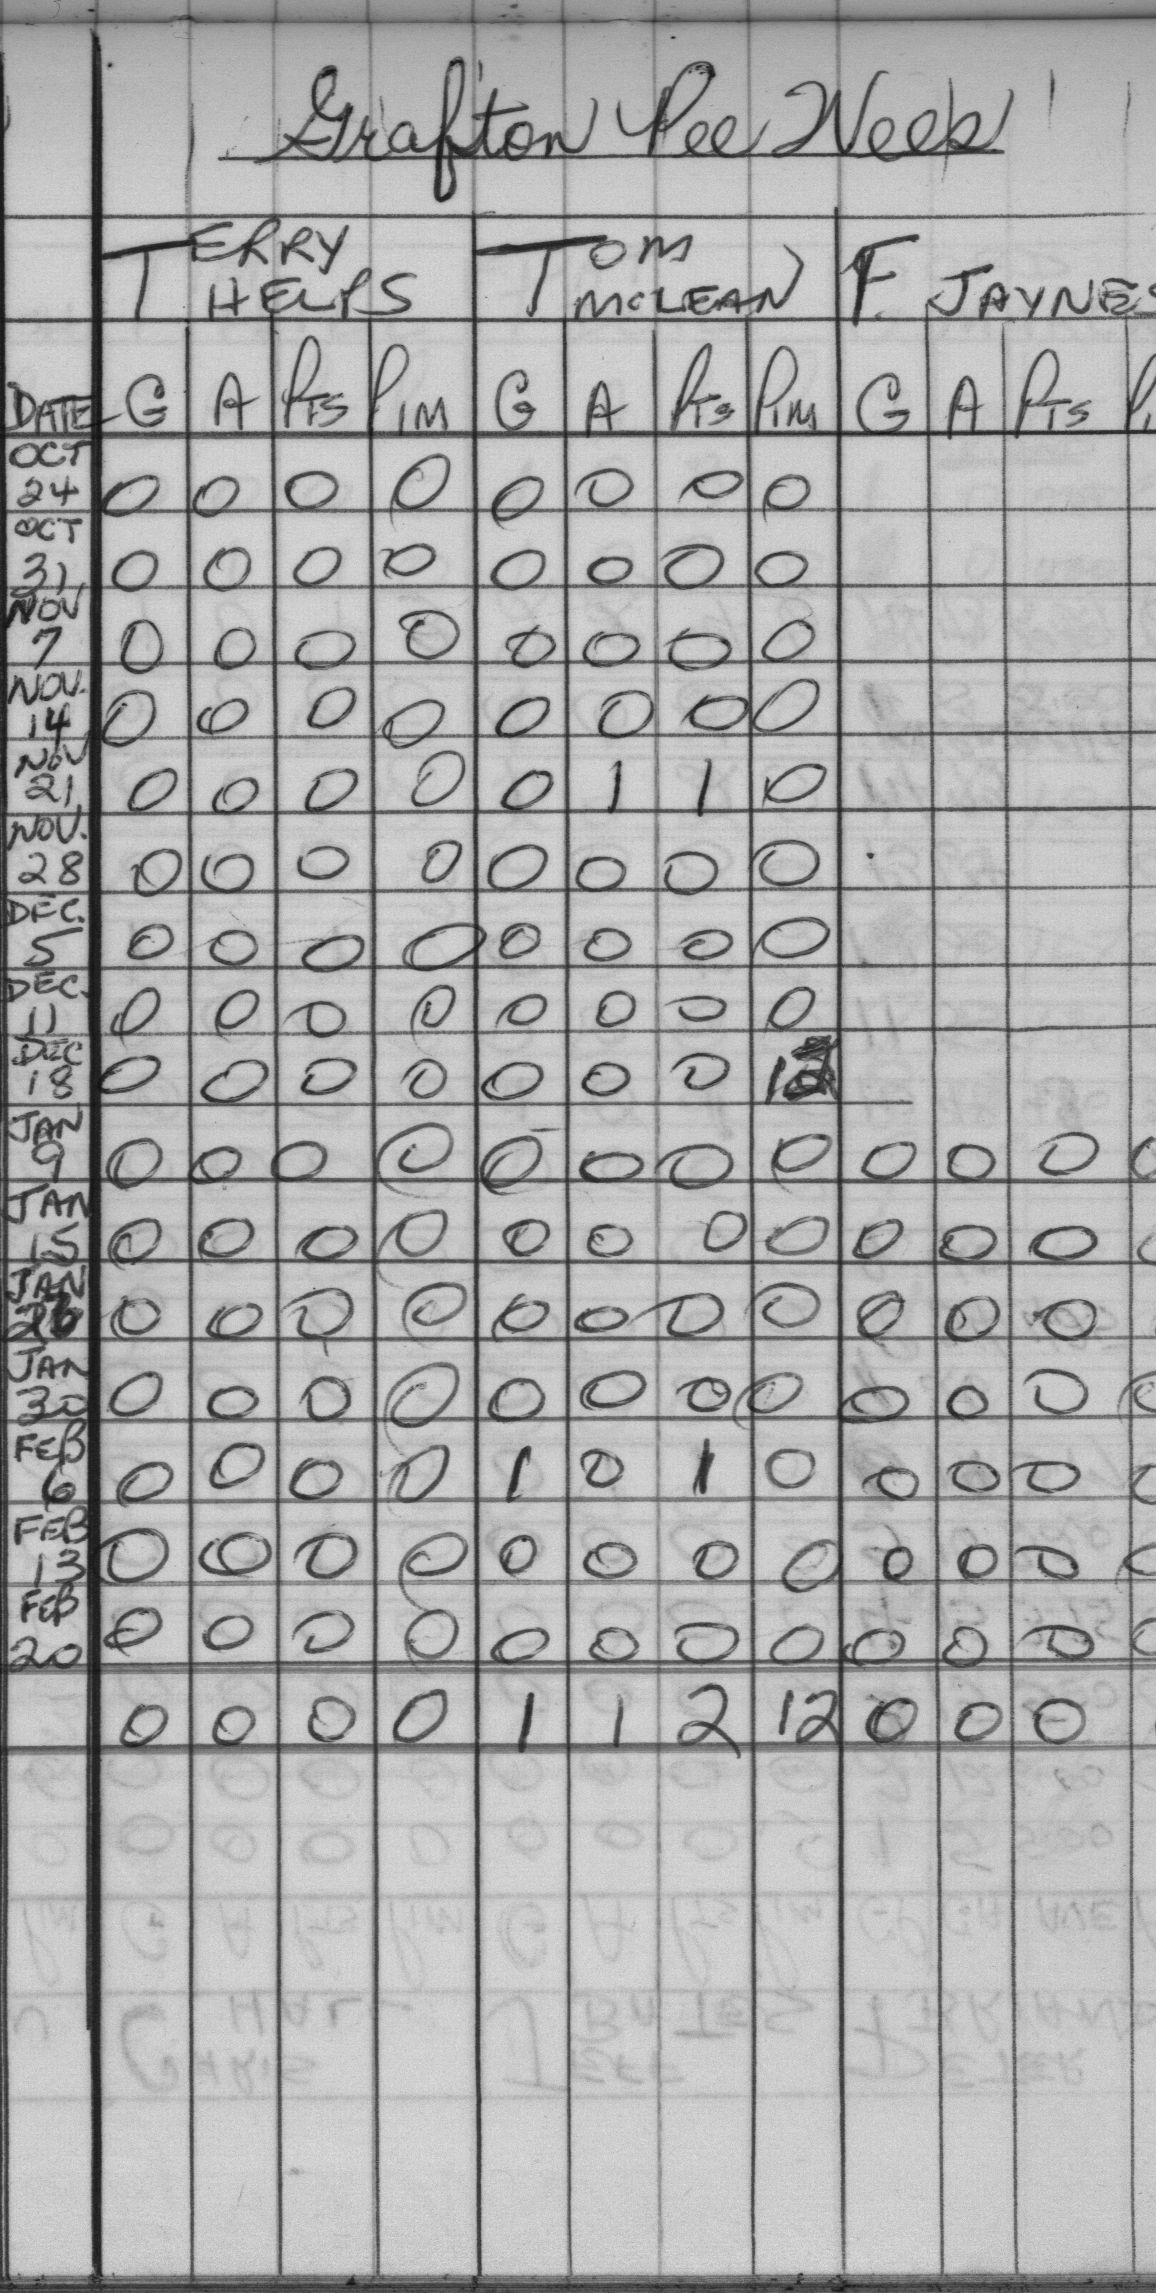 Grafton Pee Wees
TERRY HELPS TOM McLEAN F. JAYNES
DATE G A PTS PIM G A PTS PIM G A PTS
OCT 24 0 0 0 0 0 0 0 0
OCT 31 0 0 0 0 0 0 0 0
NOV 7 0 0 0 0 0 0 0 0
NOV. 14 0 0 0 0 0 0 0 0
NOV 21 0 0 0 0 0 1 1 0
NOV. 28 0 0 0 0 0 0 0 0
DEC. 5 0 0 0 0 0 0 0 0
DEC. 11 0 0 0 0 0 0 0 0
DEC 18 0 0 0 0 0 0 0 12
JAN 9 0 0 0 0 0 0 0 0 0 0 0
JAN 15 0 0 0 0 0 0 0 0 0 0 0
JAN 0 0 0 0 0 0 0 0 0 0 0
JAN 30 0 0 0 0 0 0 0 0 0 0 0
FEB 6 0 0 0 0 1 0 1 0 0 0 0
FEB 13 0 0 0 0 0 0 0 0 0 0 0
FEB 20 0 0 0 0 0 0 0 0 0 0 0
0 0 0 0 1 1 2 12 0 0 0